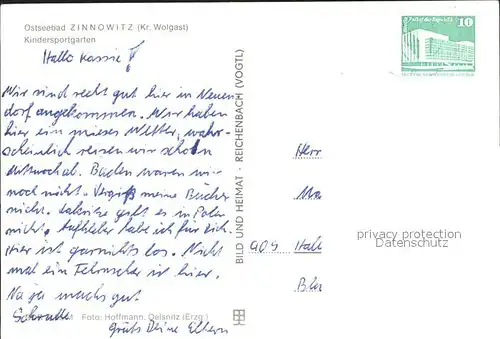 Ostseebad ZINNOWITZ (Kr. Wolgast)
Kindersportgarten
Hallo Kassie!
Wir sind recht gut hier in Neuen
dorf angekommen. Wir haben
hier ein mieses Wetter, wahr-
scheinlich reisen wir schon
Mittwoch ab. Baden waren wir
noch nicht. Vergiß meine Bücher
nicht. Lakritze gibt es in Polen
nicht. Aufkleber habe ich für Dich.
Hier ist garnichts los. Nicht
mal ein Fernseher ist hier.
Na ja machs gut
Foto: Hoffmann, Oelsnitz (Erzg.)
Grüß Deine Eltern
BILD UND HEIMAT · REICHENBACH (VOGTL)
10
Herr
409 Hall
privacy protection
Datenschutz